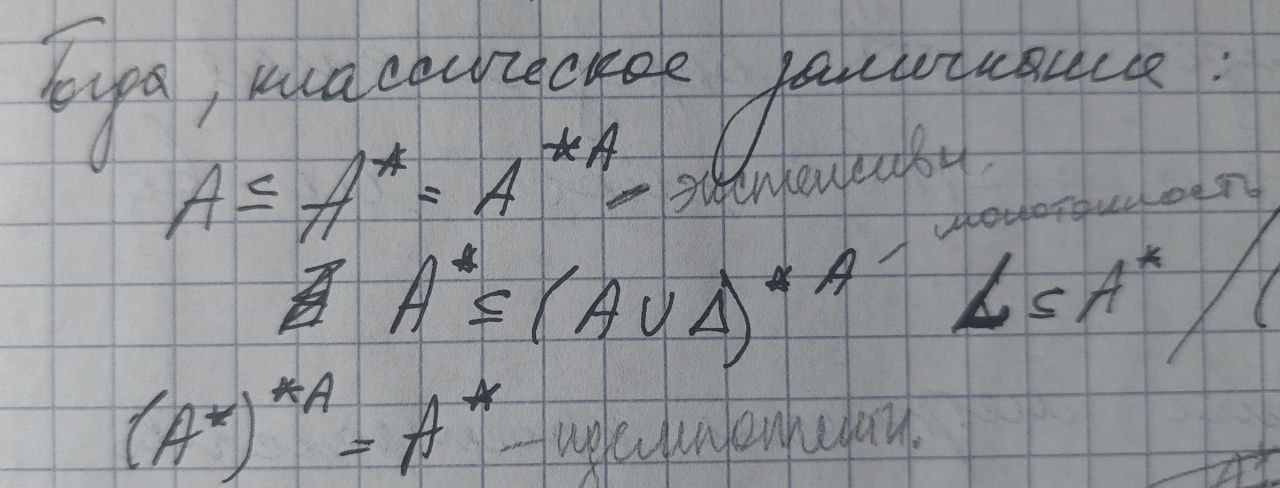 Тогда, классическое замыкание:
A ⊆ A* = A*ᴬ - экстенсивн.
A* ⊆ (A ∪ Δ)*ᴬ - монотонность L ⊆ A* / (
(A*)*ᴬ = A* - идемпотентн.